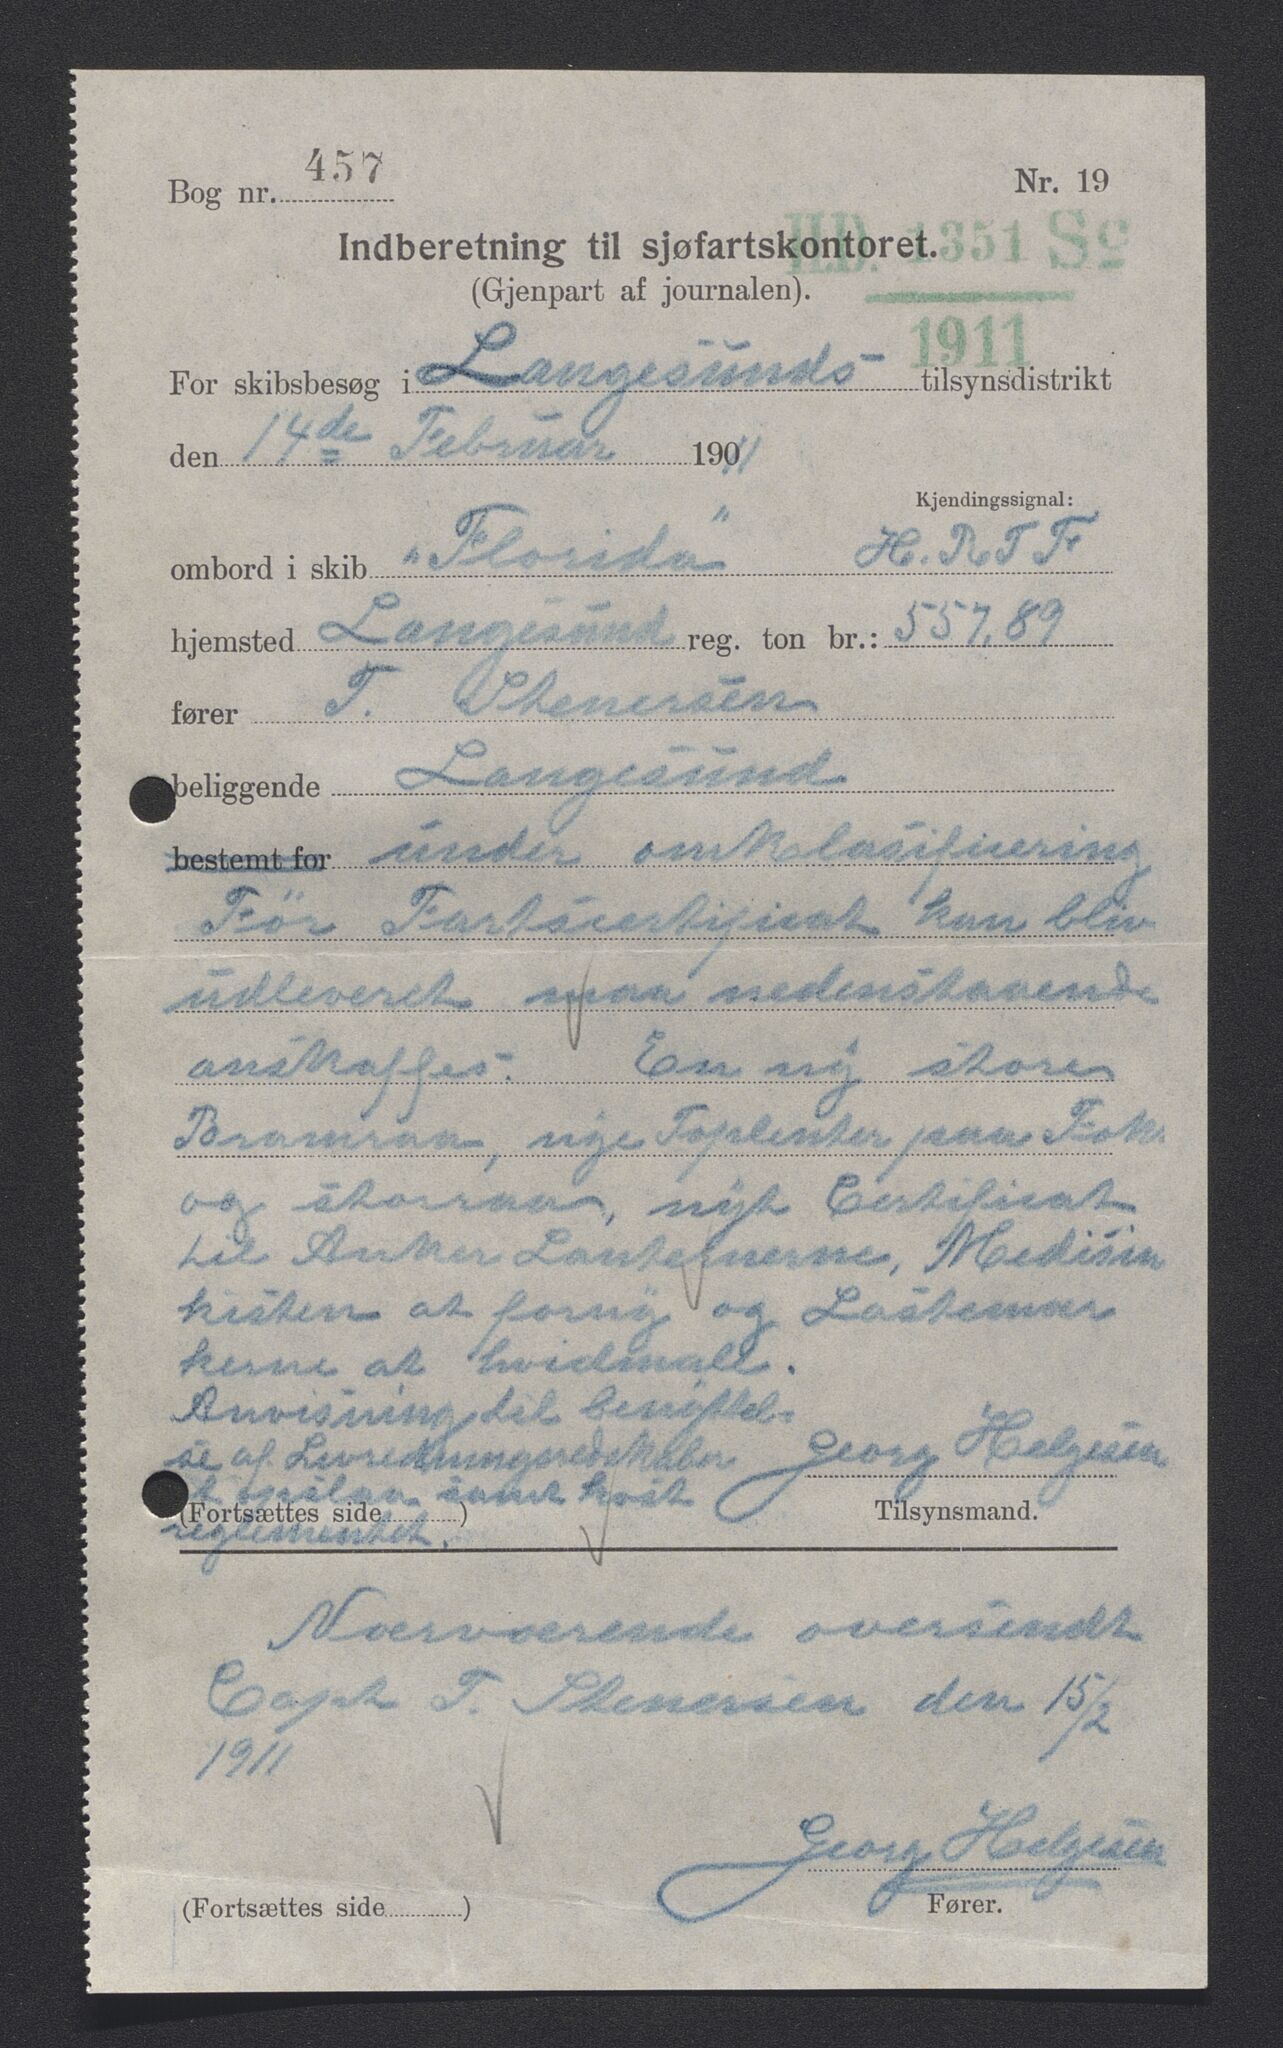 Bog nr. 457
Nr. 19
Indberetning til sjøfartskontoret.
H.D. 1351 Sc
1911
(Gjenpart af journalen).
For skibsbesøg i Langesunds tilsynsdistrikt
den 14de Februar 190 11
Kjendingssignal:
ombord i skib "Florida" H. R T F
hjemsted Langesund reg. ton br.: 557,89
fører T. Stenersen
beliggende Langesund
bestemt for under omklasificering
Før Fartscertificat kan bliv
udleveret maa nedenstaaende
anskaffes. En ny store
Bramraa, nye Toplenter paa Fok
og storraa, nyt Certificat
til Anker Lanternerne, Medisin
kisten at forny og Lastemær
kerne at hvidmale.
Anvisning til benyttel-
se af Livredningsredskaber
at opslaa samt kost
reglementet.
Georg Helgesen
(Fortsættes side )
Tilsynsmand.
Nærværende oversendt
Capt T. Stenersen den 15/2
1911
Georg Helgesen
(Fortsættes side )
Fører.